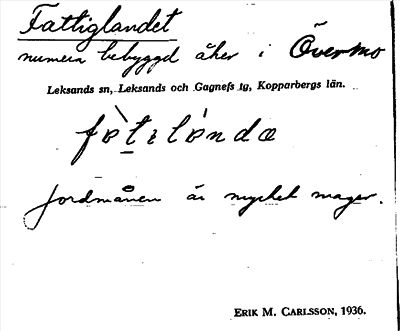 Fattiglandet
numera bebyggd åker i Övermo
Leksands sn, Leksands och Gagnefs tg, Kopparbergs län.
fàtɩlàndæ
Jordmånen är mycket mager.
ERIK M. CARLSSON, 1936.